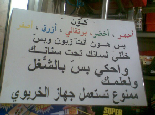 كـنـون
أحمر، أخضر، برتقالي، أزرق، أصفر
بس هون أنت زبون وبس
خلي لسانك تحت سنانك
واحكي بس بالشغل
ولعندك
ممنوع تستعمل جهاز الخربوي